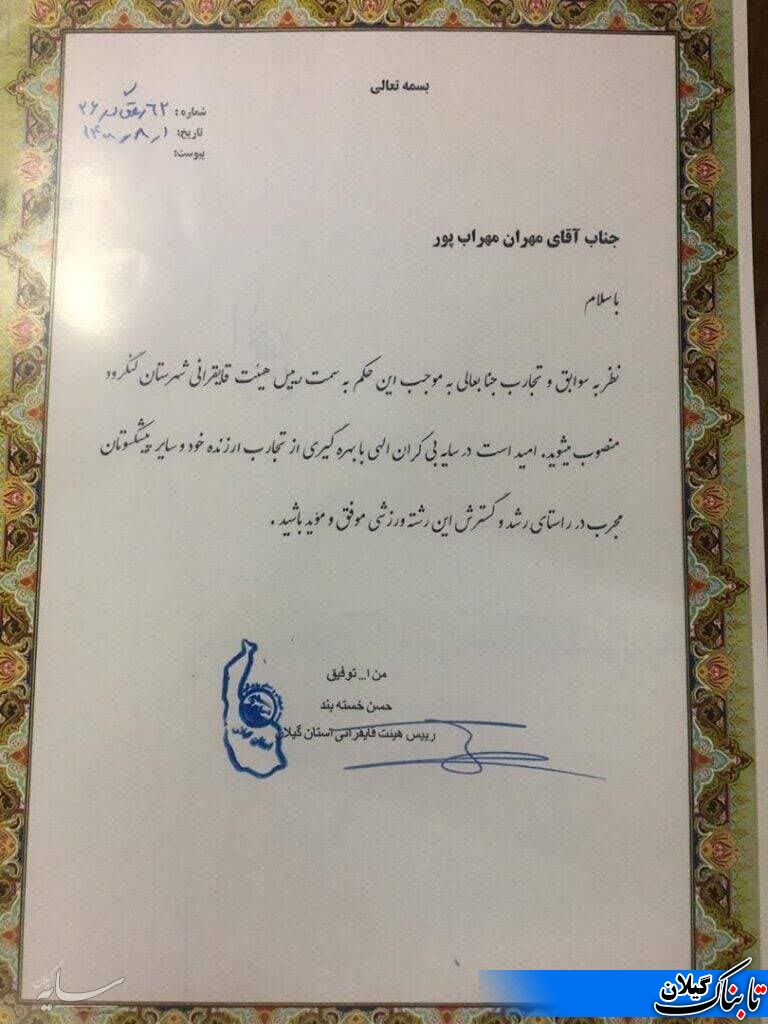 بسمه تعالی
شماره:
تاریخ:
پیوست:
جناب آقای مهران مهراب پور
باسلام
نظر به سوابق و تجارب جنابعالی به موجب این حکم به سمت رییس هیئت قایقرانی شهرستان لنگرود
منصوب میشوید. امید است در سایه بی کران الهی با بهره گیری از تجارب ارزنده خود و سایر پیشکسوتان
مجرب در راستای رشد و گسترش این رشته ورزشی موفق و مؤید باشید.
من ا... توفیق
حسن خسته بند
رییس هیئت قایقرانی استان گیلان
سایه
تابناک گیلان